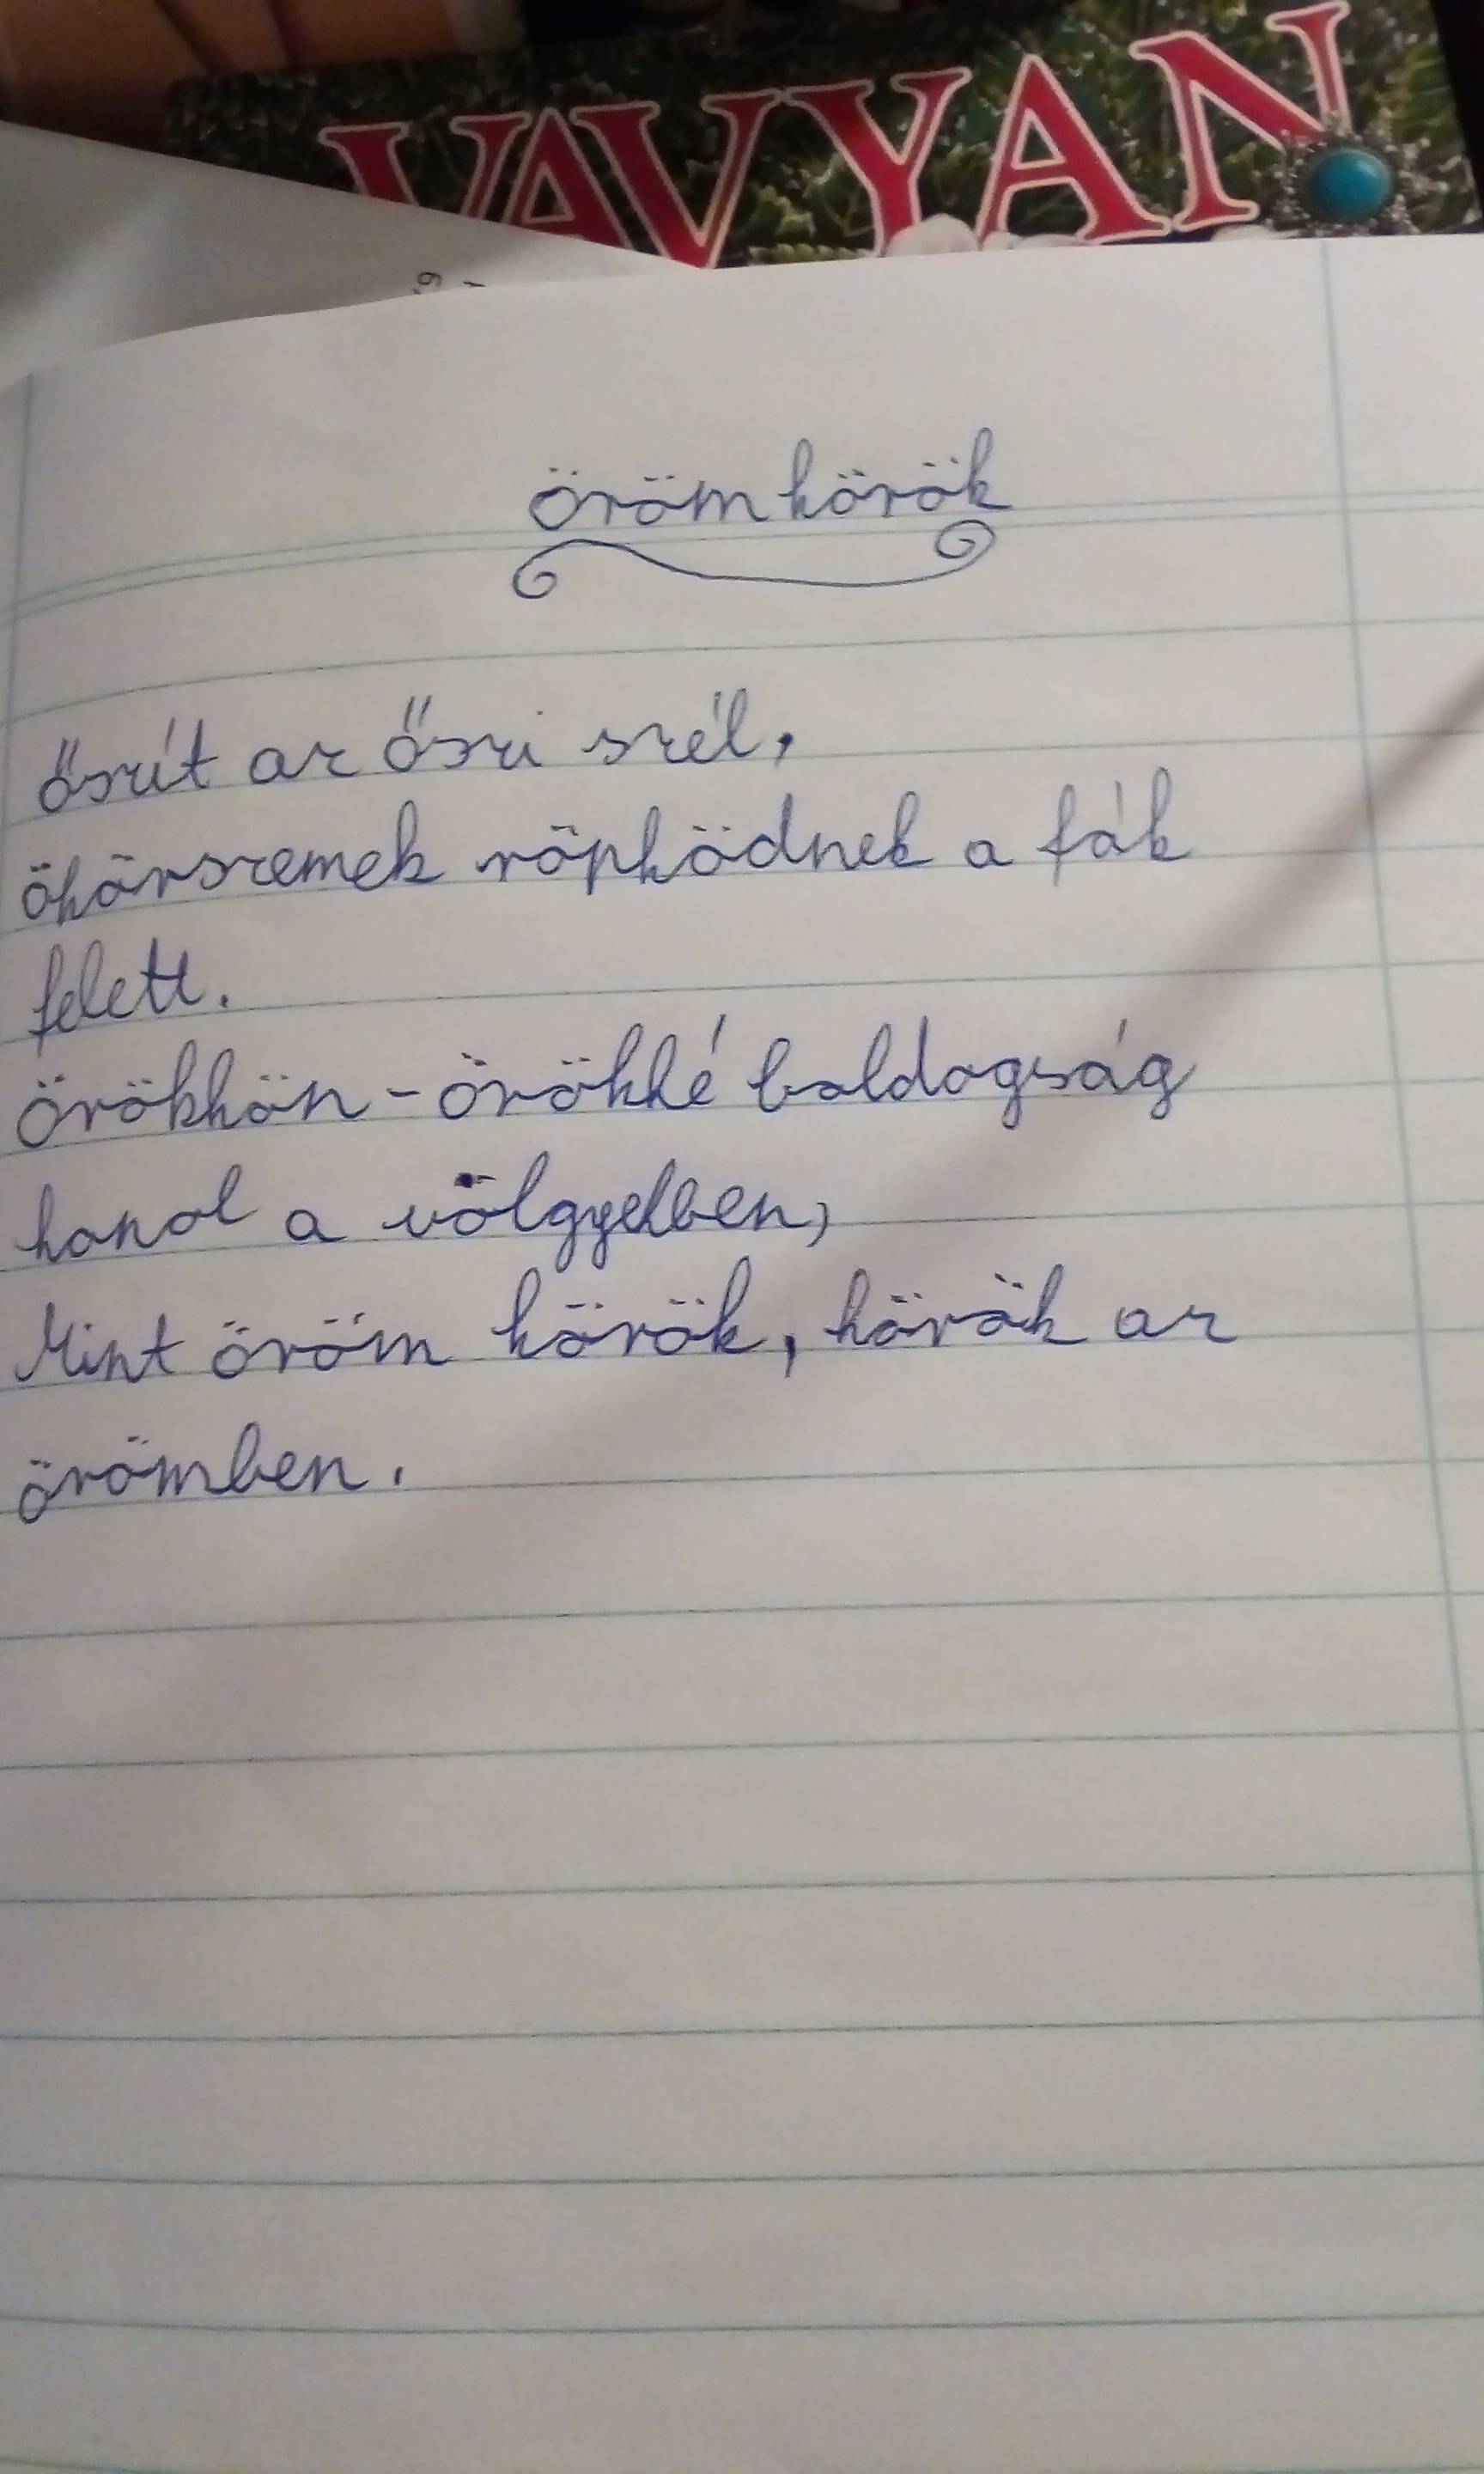 VAVYAN
örömkörök
őszít az őszi szél,
ökörszemek röpködnek a fák
felett.
Örökkön-örökké boldogság
honol a völgyekben,
Mint öröm körök, körök az
örömben.